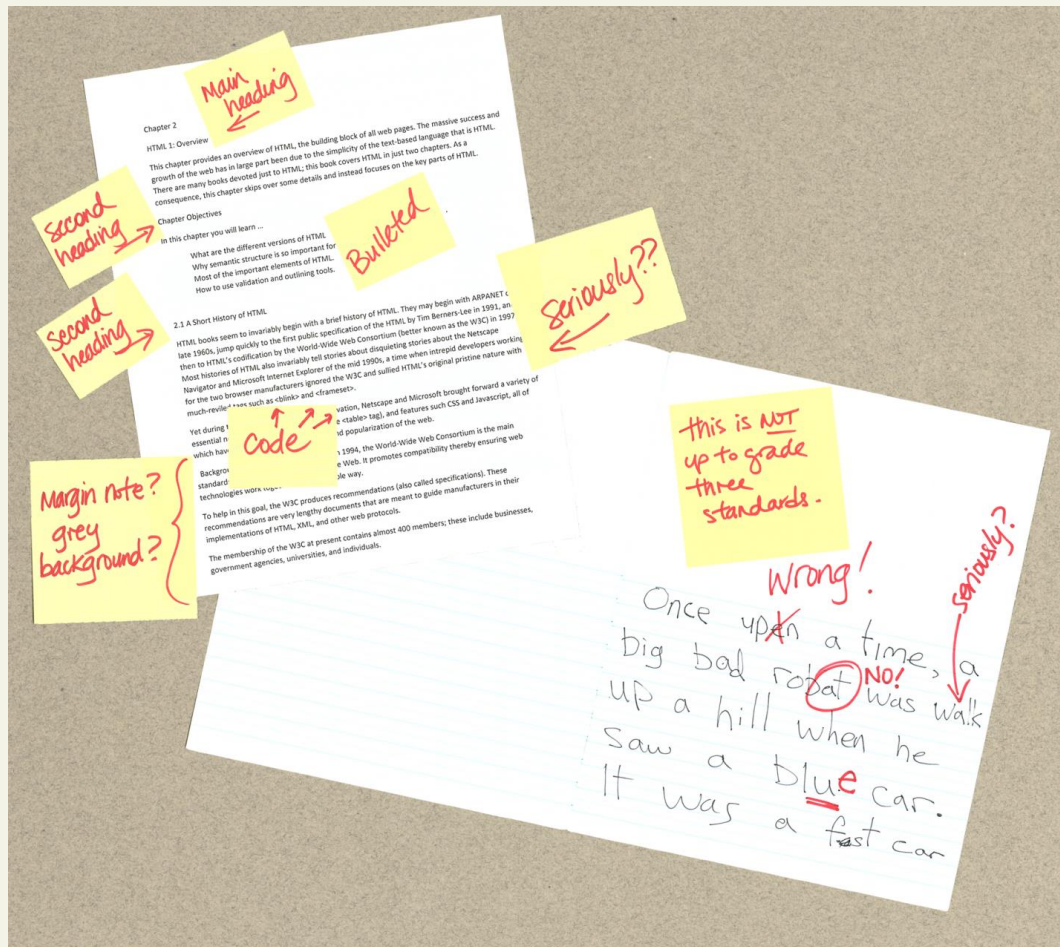 Main
heading
Chapter 2
HTML 1: Overview
This chapter provides an overview of HTML, the building block of all web pages. The massive success and
growth of the web has in large part been due to the simplicity of the text-based language that is HTML.
There are many books devoted just to HTML; this book covers HTML in just two chapters. As a
consequence, this chapter skips over some details and instead focuses on the key parts of HTML.
second
heading
Chapter Objectives
In this chapter you will learn ...
What are the different versions of HTML
Why semantic structure is so important for
Most of the important elements of HTML.
How to use validation and outlining tools.
Bulleted
second
heading
2.1 A Short History of HTML
HTML books seem to invariably begin with a brief history of HTML. They may begin with ARPANET
late 1960s, jump quickly to the first public specification of the HTML by Tim Berners-Lee in 1991, an
then to HTML's codification by the World-Wide Web Consortium (better known as the W3C) in 1997
Most histories of HTML also invariably tell stories about disquieting stories about the Netscape
Navigator and Microsoft Internet Explorer of the mid 1990s, a time when intrepid developers working
for the two browser manufacturers ignored the W3C and sullied HTML's original pristine nature with
much-reviled tags such as <blink> and <frameset>.
seriously??
Yet during vation, Netscape and Microsoft brought forward a variety of
essential n e <table> tag), and features such CSS and Javascript, all of
which hav d popularization of the web.
code
Backgrou n 1994, the World-Wide Web Consortium is the main
standard e Web. It promotes compatibility thereby ensuring web
technologies work ble way.
To help in this goal, the W3C produces recommendations (also called specifications). These
recommendations are very lengthy documents that are meant to guide manufacturers in their
implementations of HTML, XML, and other web protocols.
The membership of the W3C at present contains almost 400 members; these include businesses,
government agencies, universities, and individuals.
Margin note?
grey
background?
this is NOT
up to grade
three
standards.
Wrong!
seriously?
Once upen a time, a
big bad robat was walk
NO!
up a hill when he
saw a blue car.
It was a fast car